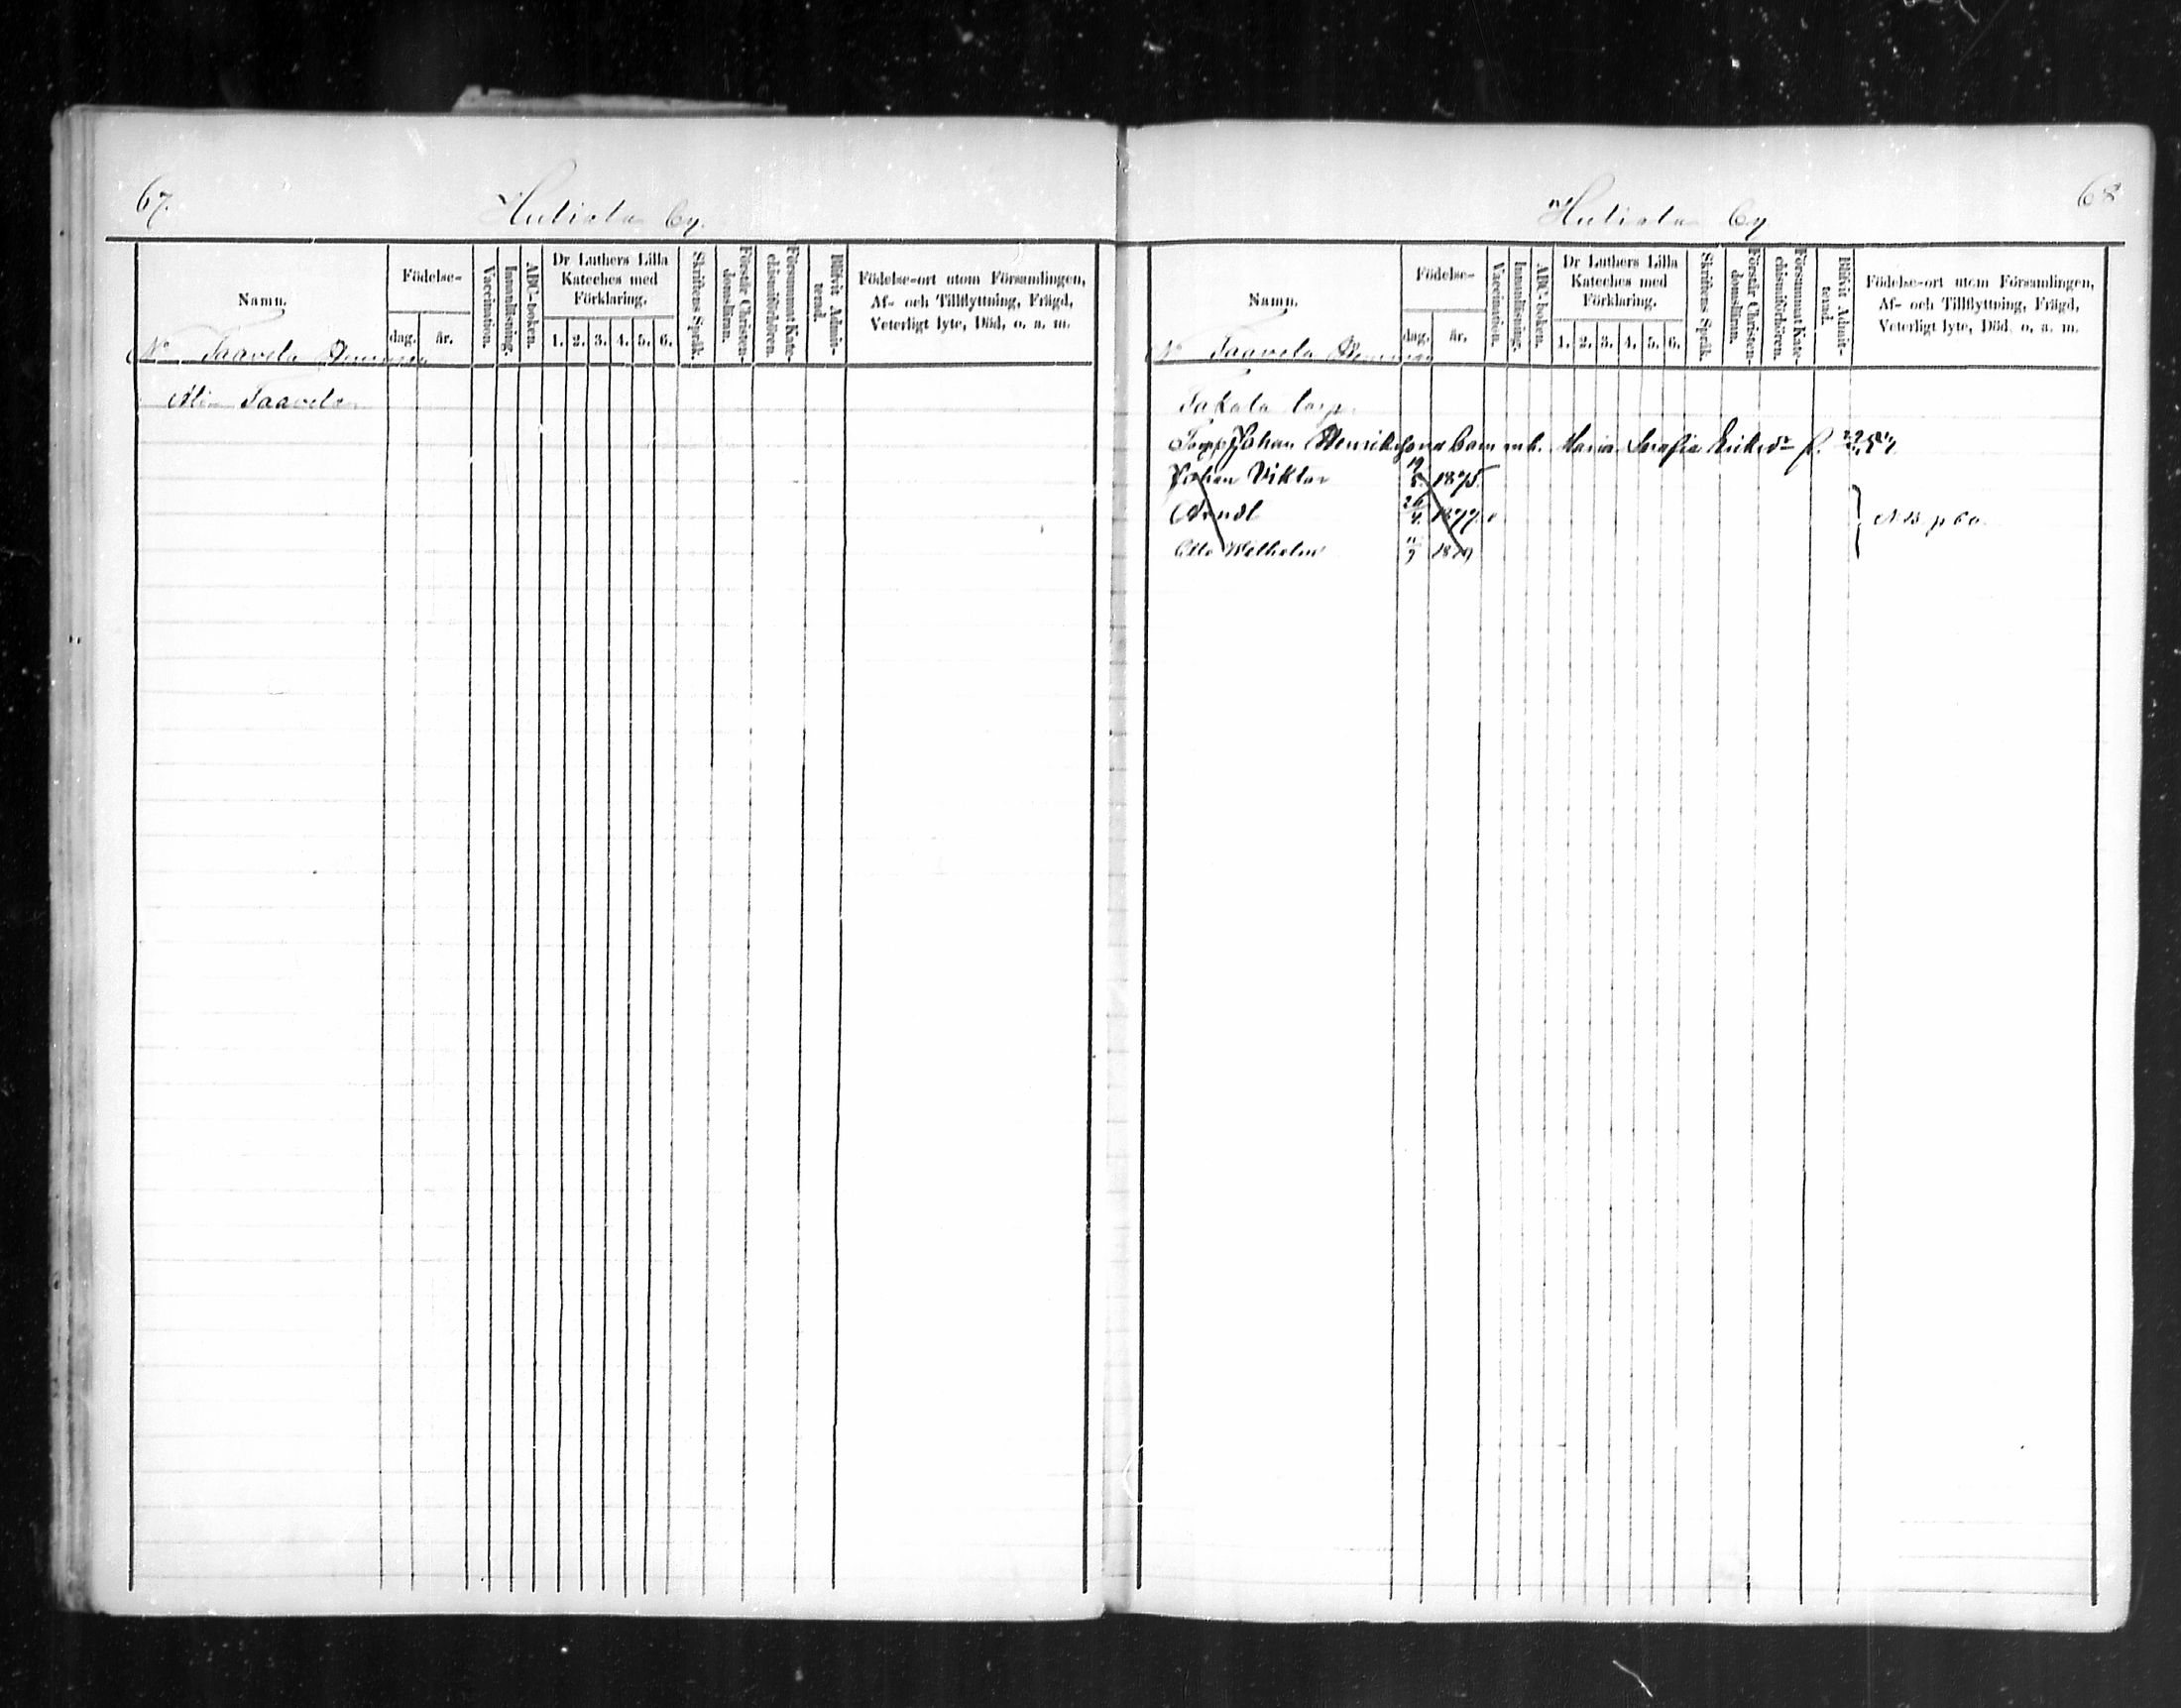 67.
Hutiala by.
Namn.
Födelse-
dag. år.
Vaccination.
Innanläsning.
ABC-boken.
Dr Luthers Lilla
Kateches med
Förklaring.
1. 2. 3. 4. 5. 6.
Skriftens Språk.
Förstår Christen-
domsläran.
Försummat Kate-
chismiförhören.
Blifvit Admit-
terad.
Födelse-ort utom Församlingen,
Af- och Tillflyttning, Frägd,
Veterligt lyte, Död, o. a. m.
No Taavela
Taavela
68
Hutiala by
Namn.
Födelse-
dag. år.
Vaccination.
Innanläsning.
ABC-boken.
Dr Luthers Lilla
Kateches med
Förklaring.
1. 2. 3. 4. 5. 6.
Skriftens Språk.
Förstår Christen-
domsläran.
Försummat Kate-
chismiförhören.
Blifvit Admit-
terad.
Födelse-ort utom Församlingen,
Af- och Tillflyttning, Frägd,
Veterligt lyte, Död, o. a. m.
No Taavela
Takala torp
Torp Johan Henrikssons barn m h. Maria Serafia Eriksdr f.
Johan Viktor 19/8 1875.
26/4 1877.
Otto Wilhelm 11/9 1879